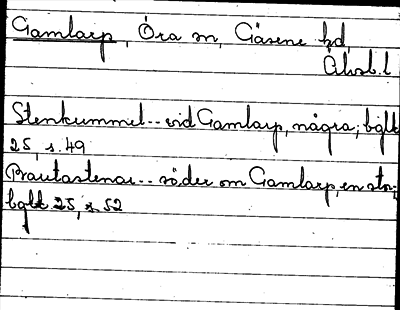 Gamlarp, Öra sn, Gäsene hd,
Älvsb.l
Stenkummel.. vid Gamlarp, några; bglt
25, s. 49
Brautastenar.. söder om Gamlarp, en stor;
bglt 25, s. 52